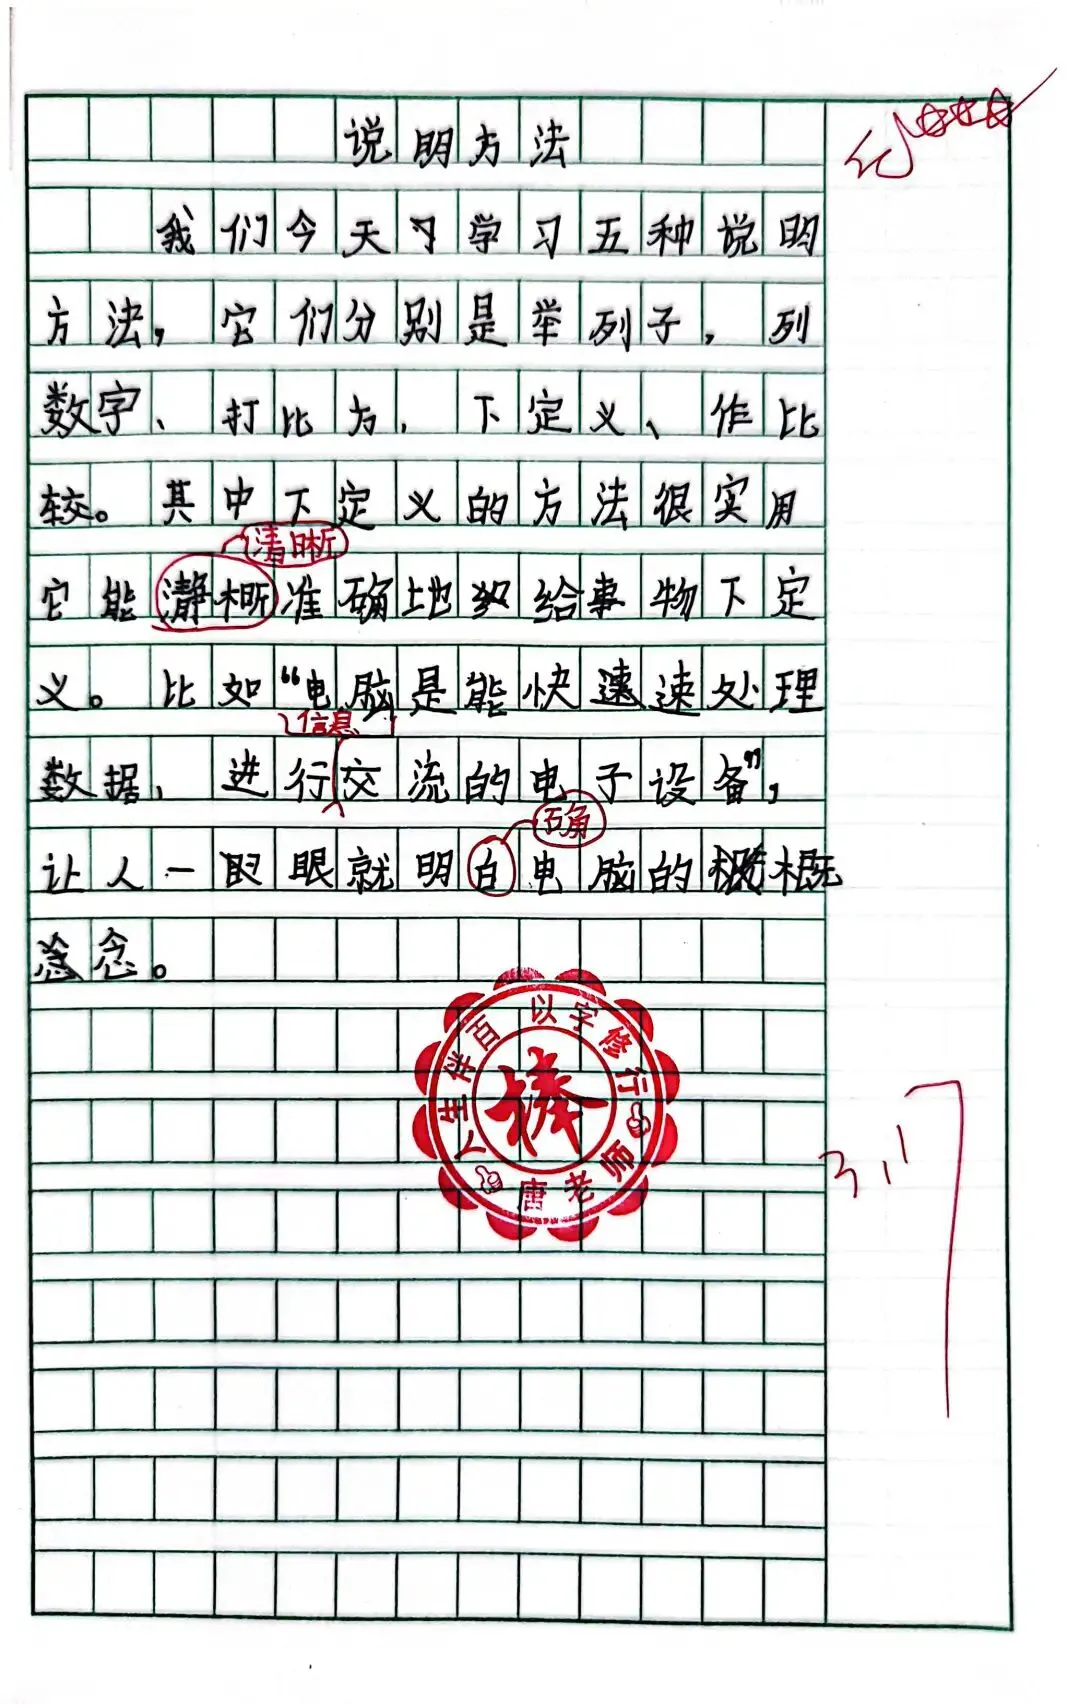 说明方法
我们今天习学习五种说明
方法，它们分别是举列子，列
数字、打比方、下定义、作比
较。其中下定义的方法很实用
清晰
它能瀞概准确地给事物下定
义。比如“电脑是能快速速处理
信息
数据，进行交流的电子设备”，
确
让人一眼就明白电脑的概
念。
以字修行
人生伴百
棒
唐老师
3.17